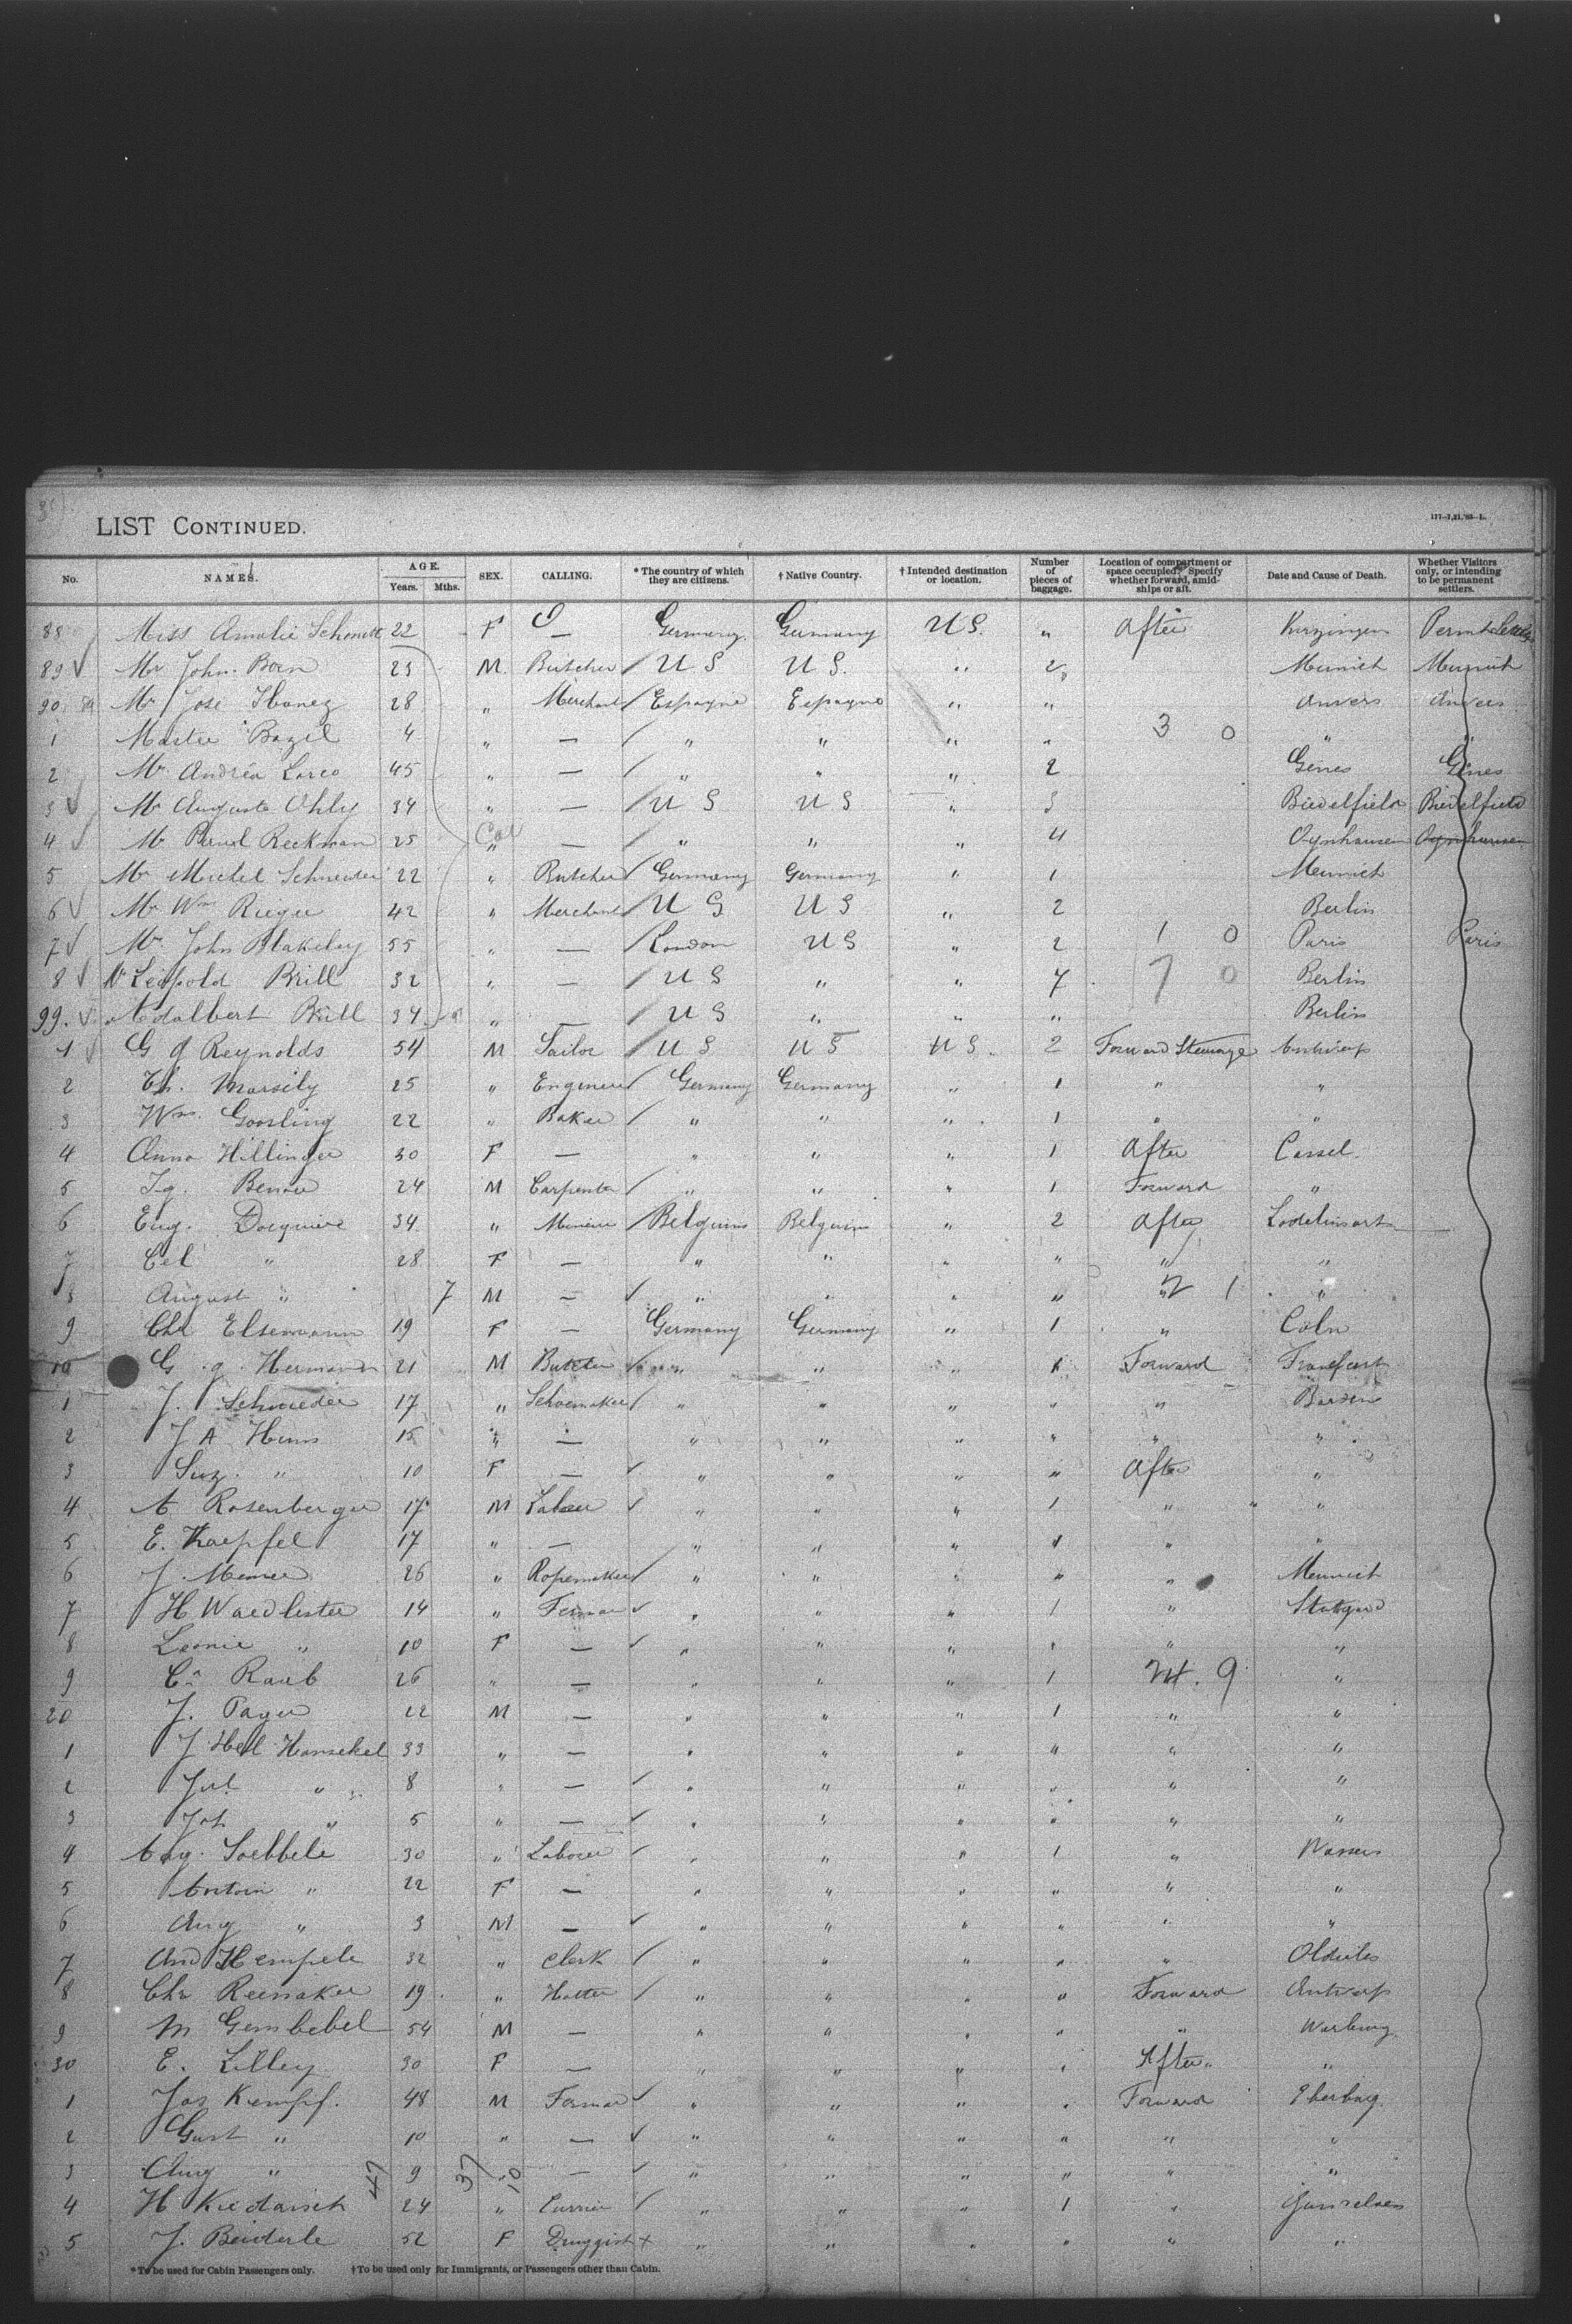 LIST CONTINUED.
117-7,21,'93-L.
No. NAMES. AGE. Years. Mths. SEX. CALLING. * The country of which they are citizens. † Native Country. † Intended destination or location. Number of pieces of baggage. Location of compartment or space occupied. Specify whether forward, amidships or aft. Date and Cause of Death. Whether Visitors only, or intending to be permanent settlers.
88 Miss Amalie Schmitt 22 F — Germany Germany U S. " After Kirzingen
89 Mr John Born 23 M Butcher U S U S. " 2 Munich Munich
90 Mr José Ibanez 28 " Merchant Espagne Espagne " " Anvers Anvers
1 Master Bazil 4 " — " " " " 3 0 " "
2 Mr Andréa Lorco 45 " — " " " 2 Gênes Gênes
3 Mr Auguste Ohly 34 " — U S U S " 3 Biedelfield Biedelfield
4 Mr Reckman 25 " — " " " 4 Oynhausen Oynhausen
5 Mr Michel Schneider 22 " Butcher Germany Germany " 1 Munich
6 Mr Wm Rieger 42 " Merchant U S U S " 2 Berlin
7 Mr John Blakeley 55 " — London U S " 2 1 0 Paris Paris
8 Mr Leopold Brill 32 " — U S " " 7 7 0 Berlin
99. Adalbert Brill 34 " — U S " " " Berlin
1 G J Reynolds 54 M Tailor U S U S U S. 2 Forward Steerage Antwerp
2 Th. Marsily 25 " Engineer Germany Germany " 1 " "
3 Wm. Goosling 22 " Baker " " " 1 " "
4 Anna Hillinger 30 F — " " " 1 After Cassel.
5 Ig. 24 M Carpenter " " " 1 Forward "
6 Eug. Docquier 34 " Belgium Belgium " 2 After Lodelinsart
7 Cel " 28 F — " " " " " "
8 August " 7 M — " " " " " 2 1 "
9 Chr Elsemann 19 F — Germany Germany " 1 " Coln
10 G. g. Hermann 21 M Butcher " " " 1 Forward Francfurt
1 J. Schneider 17 " Schoemaker " " " " "
2 J A 15 " — " " " " " "
3 Suz. " 10 F — " " " " After "
4 A Rosenberger 17 M Laborer " " " 1 " "
5 E. Knoepfel 17 " — " " " " " "
6 J. 26 " Ropemaker " " " " " Munich
7 H Waedlester 14 " " " " 1 " Stutgard
8 Leonie " 10 F — " " " " " "
9 Raub 26 " — " " " 1 24. 9 "
20 J. Payer 22 M — " " " 1 " "
1 J Heil Hansekel 33 " — " " " " " "
2 Jul " 8 " — " " " " " "
3 Joh " 5 " — " " " " " "
4 Aug. Soebbele 30 " Laborer " " " 1 "
5 Antoin " 22 F — " " " " " "
6 Aug " 3 M — " " " " " "
7 And Hempele 32 " Clerk " " " " "
8 Chr Reinaker 19 " Hatter " " " " Forward Antwerp
9 M Gembebel 54 M — " " " " " Warburg
30 E. Lilley 30 F — " " " " After "
1 Jos Kempf. 48 M Farmer " " " " Forward Eberbag
2 Gust " 10 " — " " " " " "
3 Aug " 9 " — " " " " " "
47 37 10
4 H Kiedaisch 24 " Currier " " " 1 "
5 J. Beiderle 52 F Druggist " " " " " "
*To be used for Cabin Passengers only. †To be used only for Immigrants, or Passengers other than Cabin.